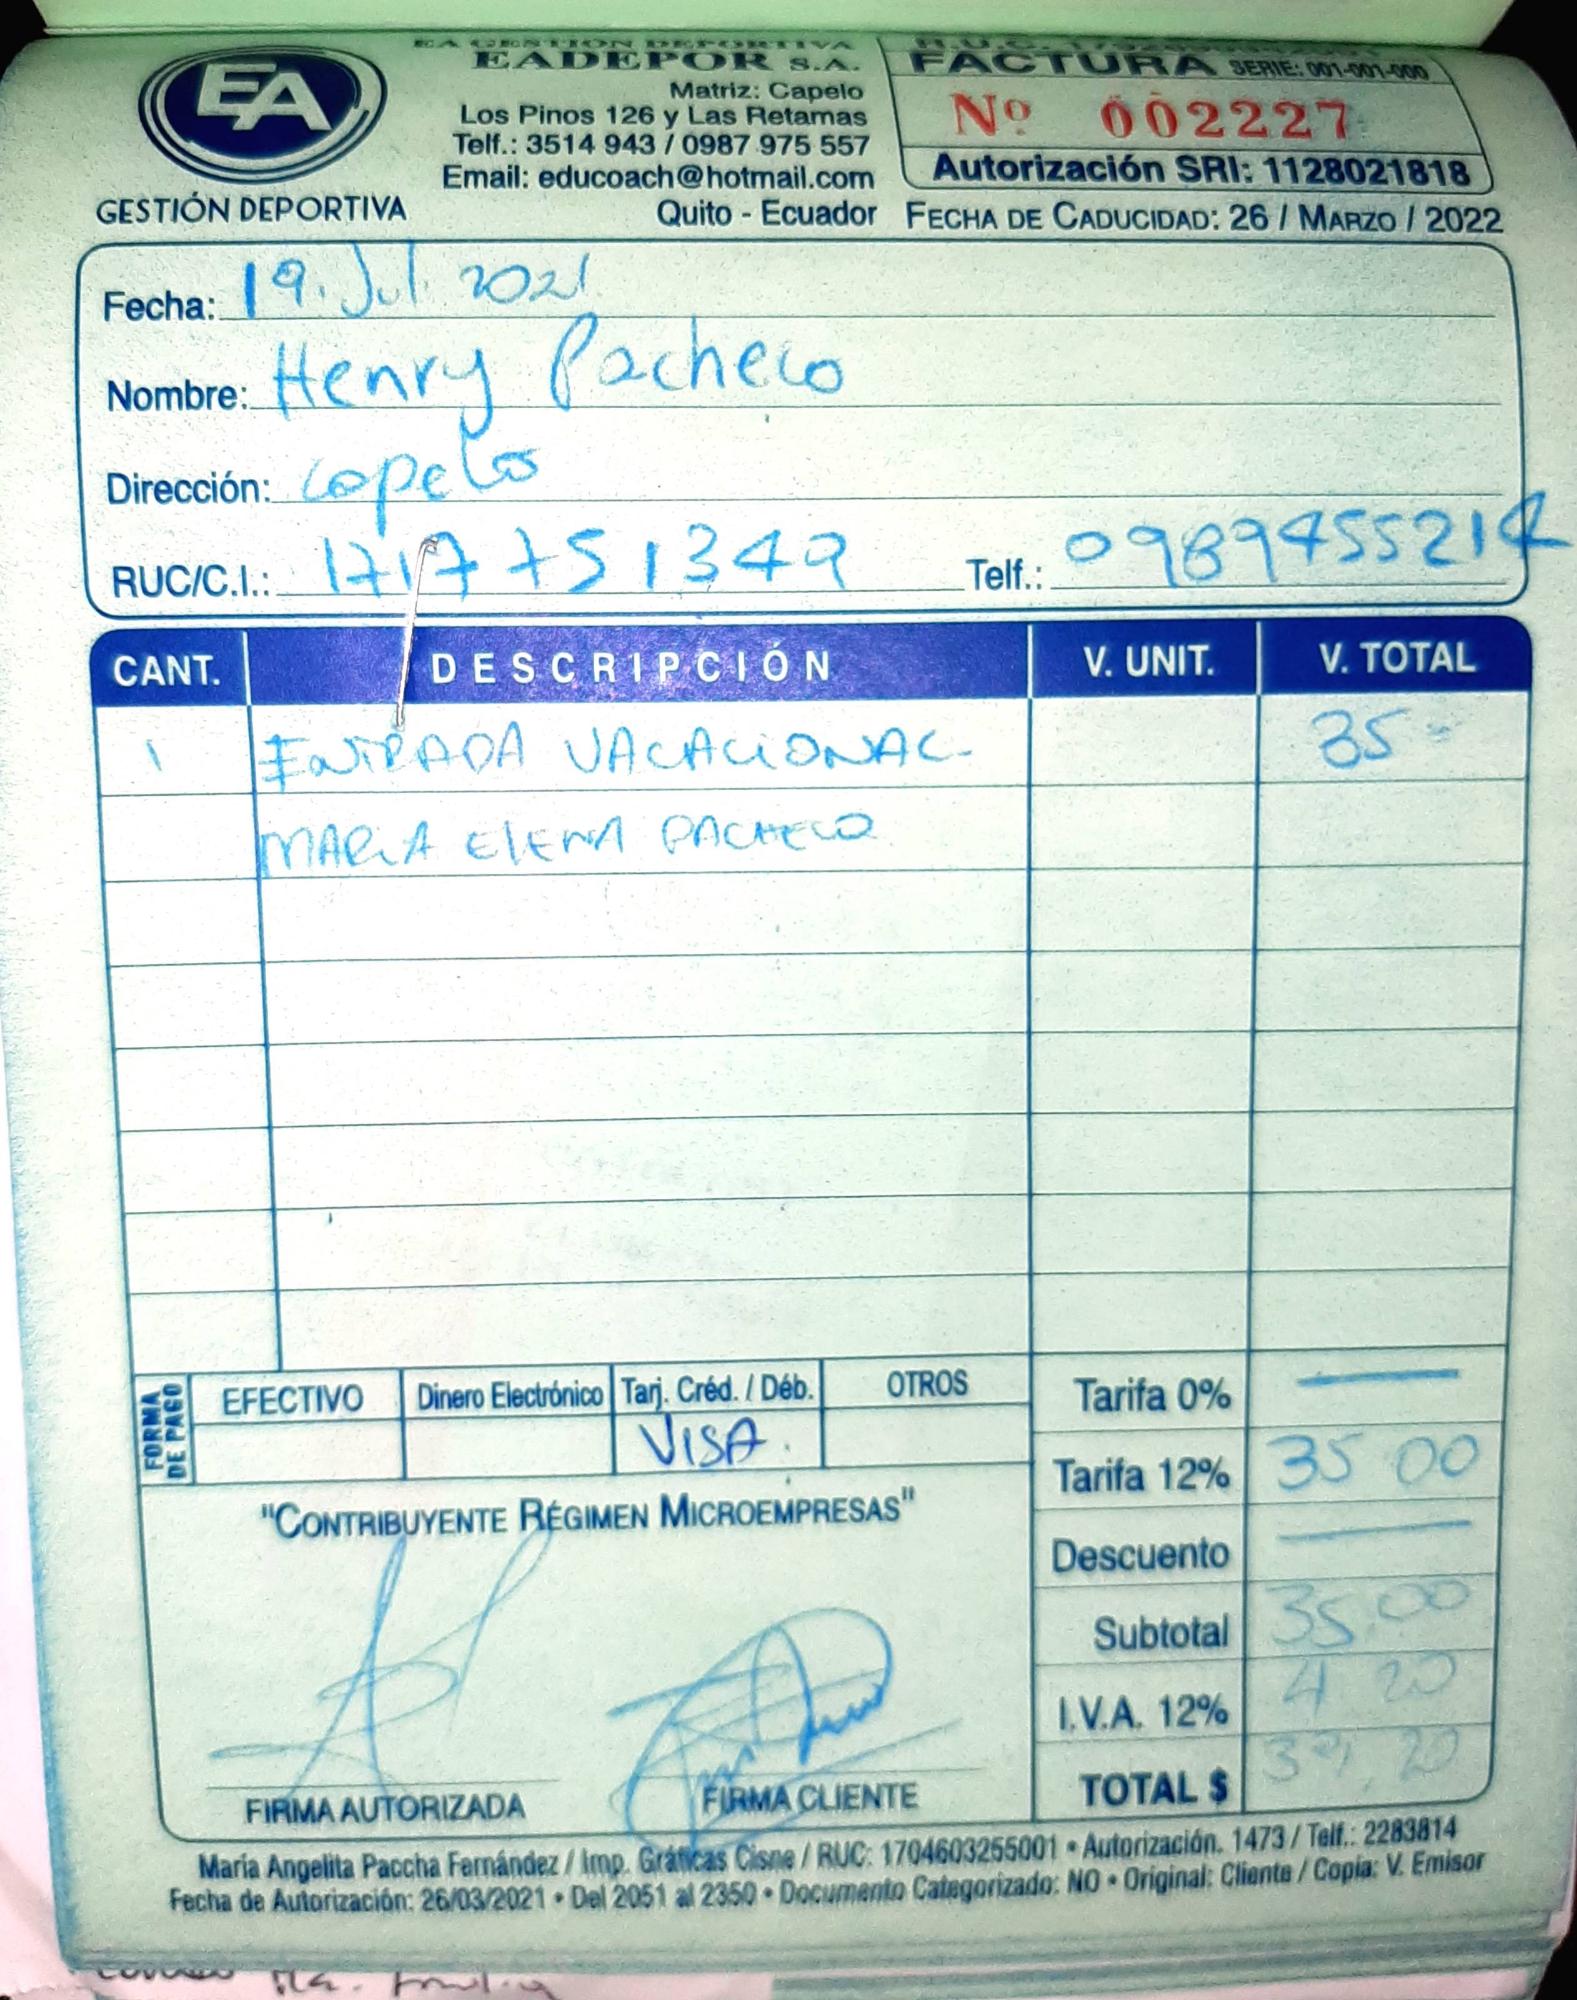 EA
GESTIÓN DEPORTIVA
EA GESTION DEPORTIVA
EADEPOR S.A.
Matriz: Capelo
Los Pinos 126 y Las Retamas
Telf.: 3514 943 / 0987 975 557
Email: educoach@hotmail.com
Quito - Ecuador
R.U.C.
FACTURA SERIE: 001-001-000
Nº 002227
Autorización SRI: 1128021818
FECHA DE CADUCIDAD: 26 / MARZO / 2022
Fecha: 19. Jul. 2021
Nombre: Henry Pacheco
Dirección: Capelo
RUC/C.I.: 1717751349 Telf.:
CANT. DESCRIPCIÓN V. UNIT. V. TOTAL
1 ENTRADA VACACIONAL 35-
MARIA ELENA PACHECO
FORMA DE PAGO
EFECTIVO Dinero Electrónico Tarj. Créd. / Déb. OTROS
VISA.
Tarifa 0% —
Tarifa 12% 35 00
Descuento —
Subtotal 35,00
I.V.A. 12% 4 20
TOTAL $ 39,20
"CONTRIBUYENTE RÉGIMEN MICROEMPRESAS"
FIRMA AUTORIZADA FIRMA CLIENTE
María Angelita Paccha Fernández / Imp. Gráficas Cisne / RUC: 1704603255001 • Autorización. 1473 / Telf.: 2283814
Fecha de Autorización: 26/03/2021 • Del 2051 al 2350 • Documento Categorizado: NO • Original: Cliente / Copia: V. Emisor